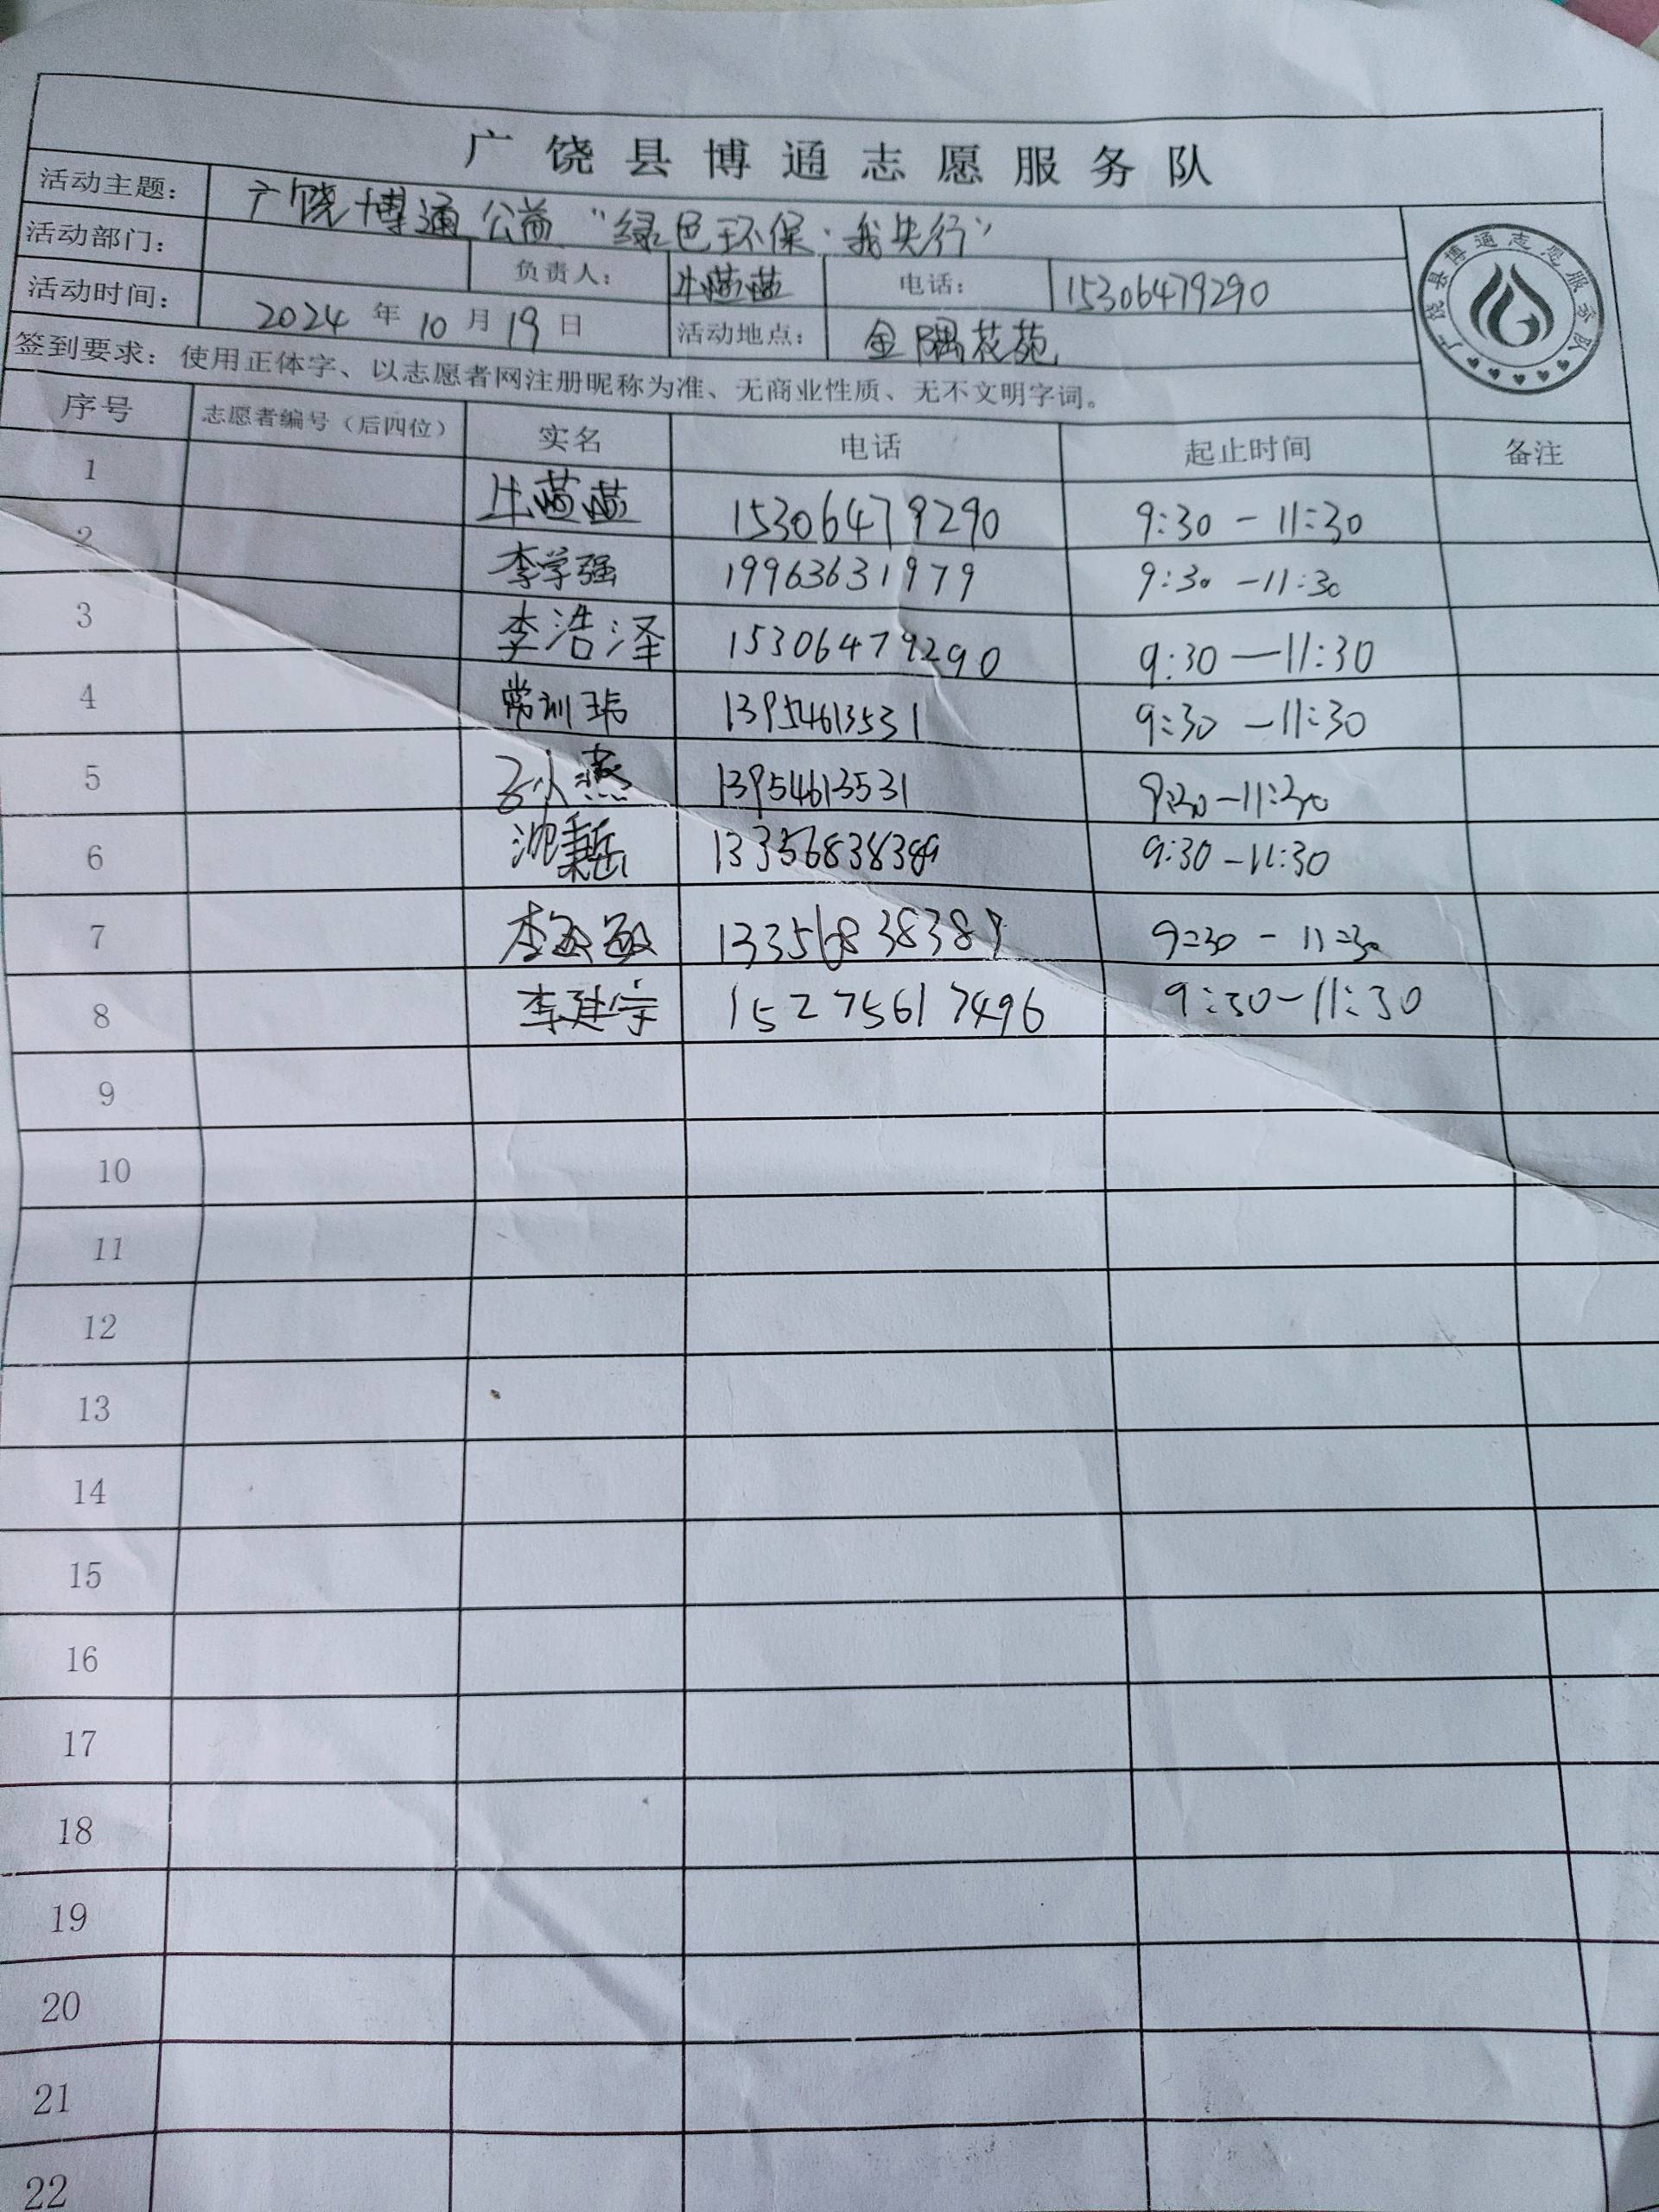 广饶县博通志愿服务队
活动主题： 广饶博通公益“绿色环保·我先行”
活动部门： 负责人： 牛薇薇 电话： 15306479290
活动时间： 2024 年 10 月 19 日 活动地点： 金隅花苑
广饶县博通志愿服务队
签到要求：使用正体字、以志愿者网注册昵称为准、无商业性质、无不文明字词。
序号 志愿者编号（后四位） 实名 电话 起止时间 备注
1 牛薇薇 15306479290 9:30 - 11:30
2 李学强 19963631979 9:30 - 11:30
3 李浩泽 15306479290 9:30 — 11:30
4 常训玮 13954613531 9:30 - 11:30
5 孟小燕 13954613531 9:30 - 11:30
6 沈秉岳 13356838389 9:30 - 11:30
7 李敏敏 13356838389 9:30 - 11:30
8 李建宇 15275617496 9:30 - 11:30
9
10
11
12
13
14
15
16
17
18
19
20
21
22